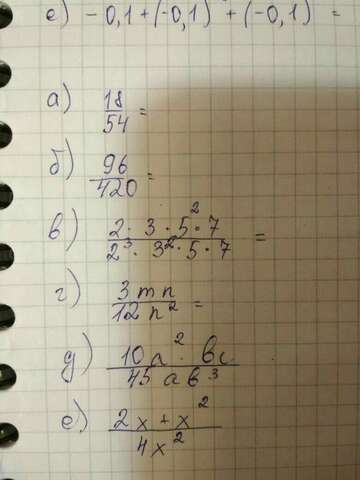 е) -0,1 + (-0,1) + (-0,1) =
а) 18/54 =
б) 96/420 =
в) 2 · 3 · 5² · 7 / 2³ · 3² · 5 · 7 =
г) 3mn / 12n² =
д) 10a² · bc / 45ab³
е) 2x + x² / 4x²